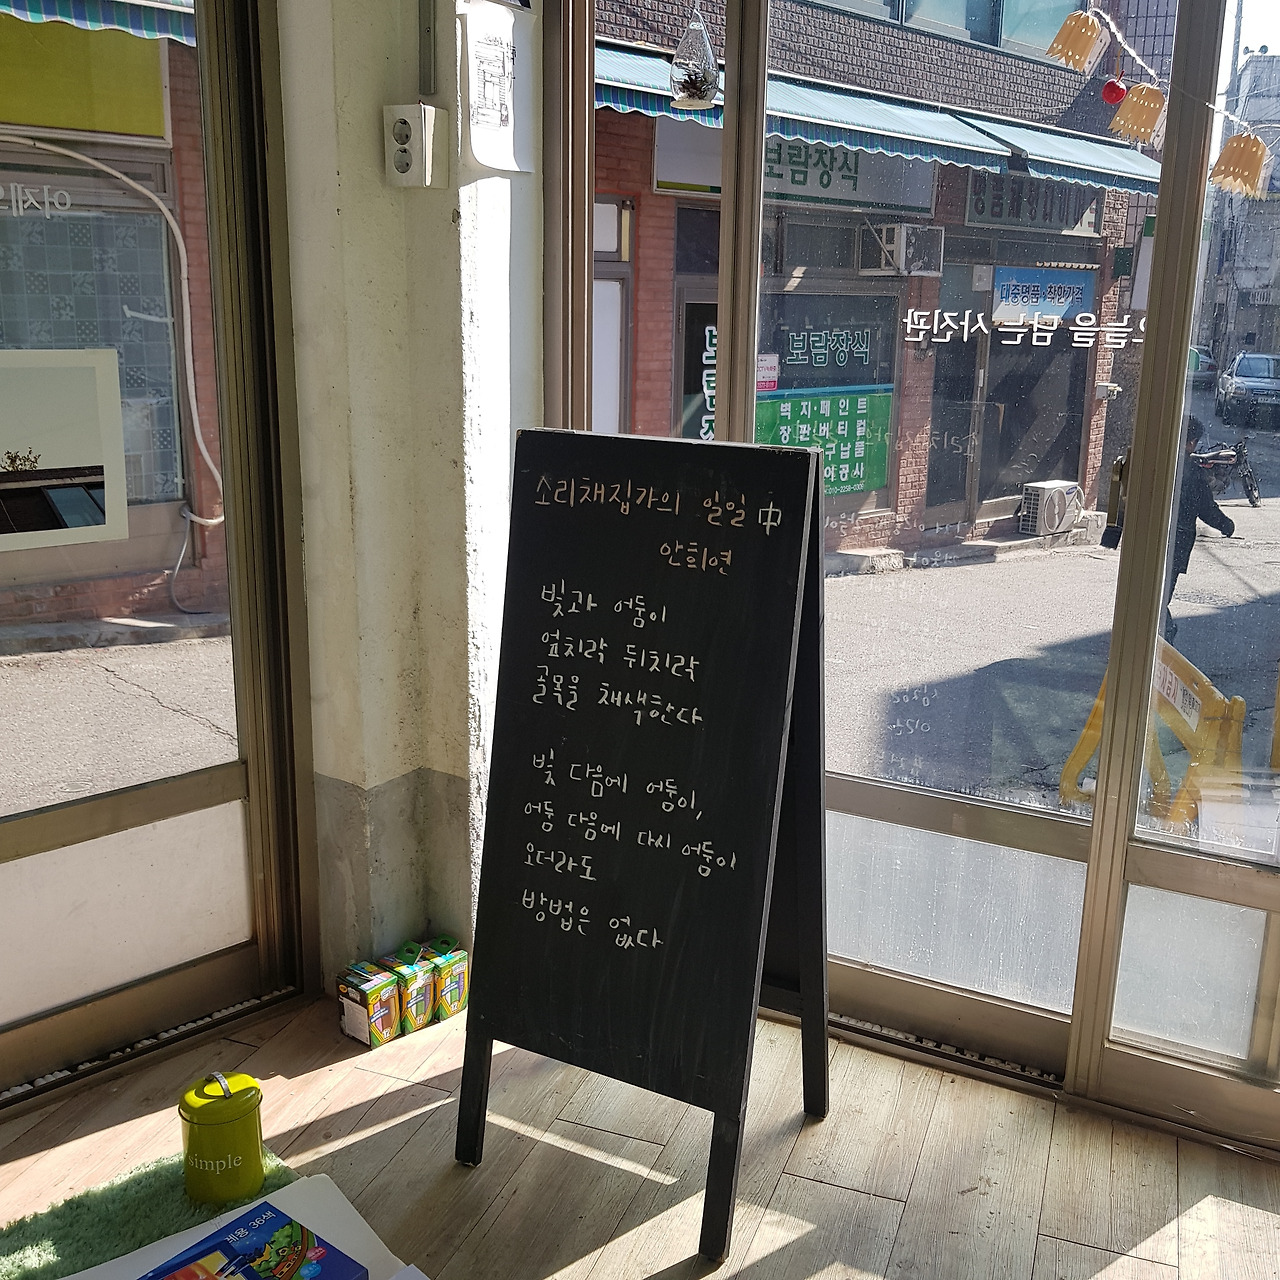 소리채집가의 일일 中
안희연
빛과 어둠이
엎치락 뒤치락
골목을 채색한다
빛 다음에 어둠이,
어둠 다음에 다시 어둠이
오더라도
방법은 없다
보람장식
보람장식
벽지·페인트
장판·버티컬
납품
공사
대중명품·착한가격
오늘을 담는 사진관
어제
simple
36색